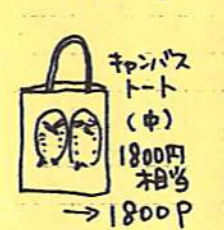 キャンバス
トート
(中)
1800円
相当
→1800P